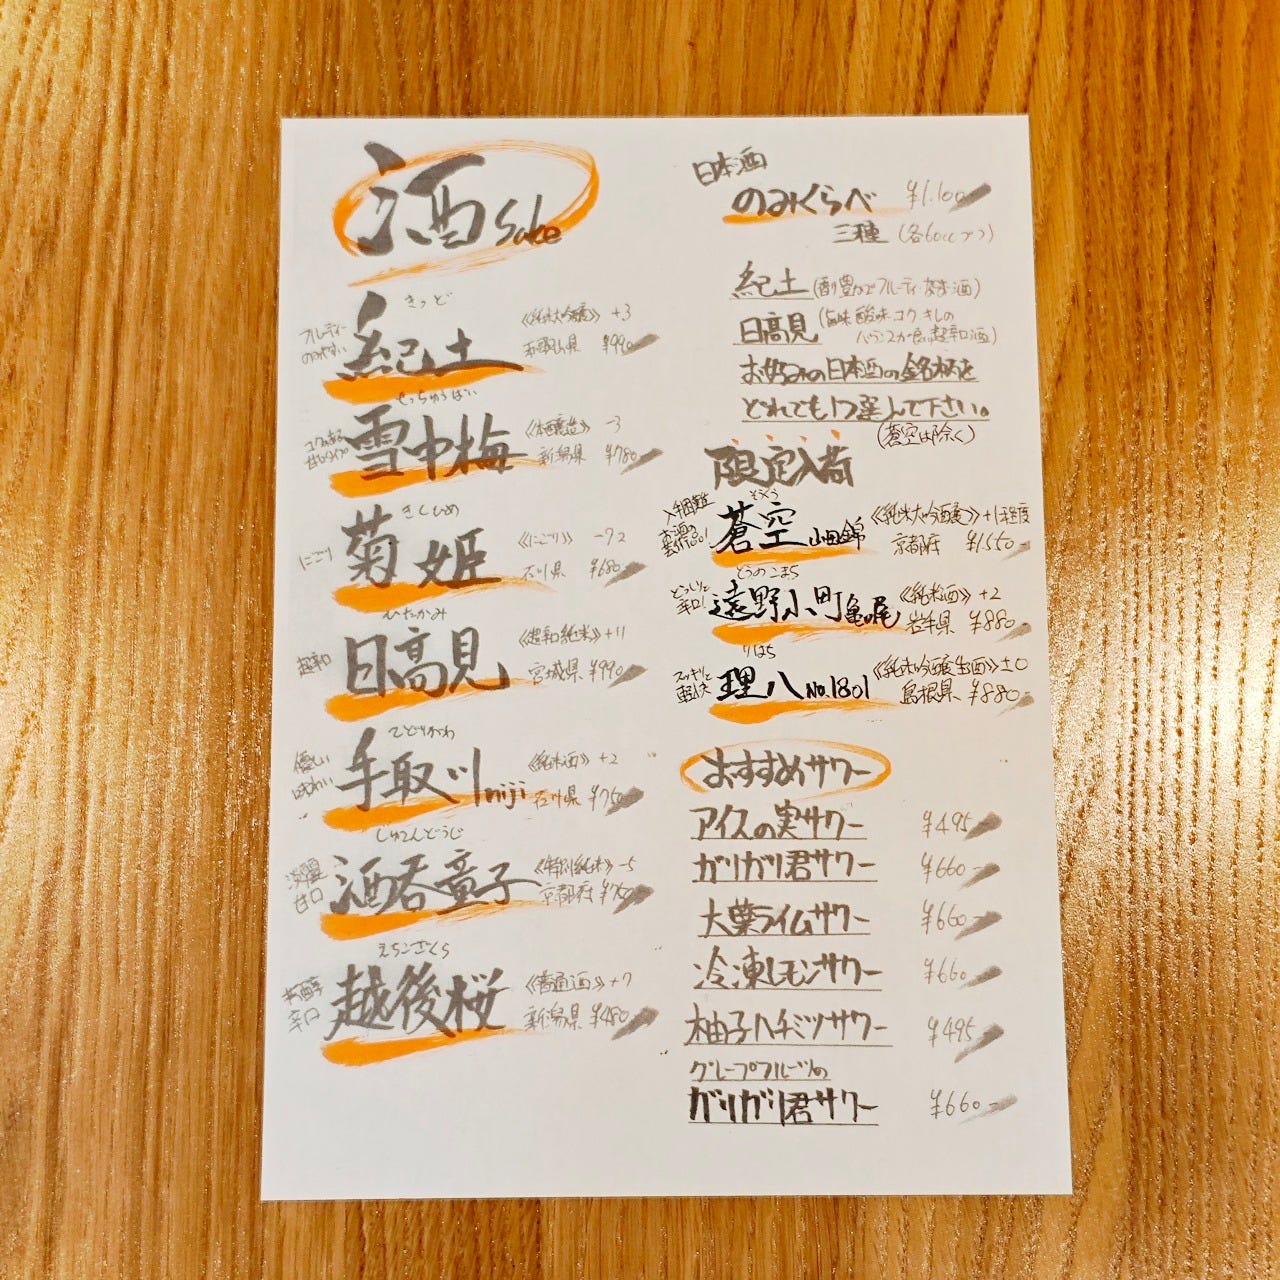 酒 Sake
きっど
フルーティー
のみやすい
紀土
《純米大吟醸》 +3
和歌山県 ¥990-
せっちゅうばい
コクのある
甘口タイプ
雪中梅
《本醸造》 -3
新潟県 ¥780-
きくひめ
にごり
菊姫
《にごり》 -22
石川県 ¥680-
ひたかみ
超辛口
日高見
《超辛純米》 +11
宮城県 ¥990-
てどりがわ
優しい
味わい
手取川 niji
《純米酒》 +2
石川県 ¥750-
しゅてんどうじ
淡麗
甘口
酒呑童子
《特別純米》 -5
京都府 ¥750-
えちござくら
芳醇
辛口
越後桜
《普通酒》 +7
新潟県 ¥480-
日本酒
のみくらべ ¥1.100-
三種 (各60ccずつ)
紀土 (香り豊かでフルーティなお酒)
日高見 (旨味 酸味 コク キレの
バランスが良い超辛口酒)
お好みの日本酒の銘柄を
どれでも1つ選んで下さい。
(蒼空は除く)
限定入荷
そうくう
入手困難
お酒の
蒼空 山田錦
《純米大吟醸》 +1程度
京都府 ¥1.550-
とうのこまち
どっしりと
辛口!
遠野小町 亀の尾
《純米酒》 +2
岩手県 ¥880-
りはち
スッキリと
軽快
理八 No.1801
《純米吟醸生酒》 ±0
島根県 ¥880-
おすすめサワー
アイスの実サワー ¥495-
ガリガリ君サワー ¥660-
大葉ライムサワー ¥660-
冷凍レモンサワー ¥660-
柚子ハチミツサワー ¥495-
グレープフルーツの
ガリガリ君サワー ¥660-